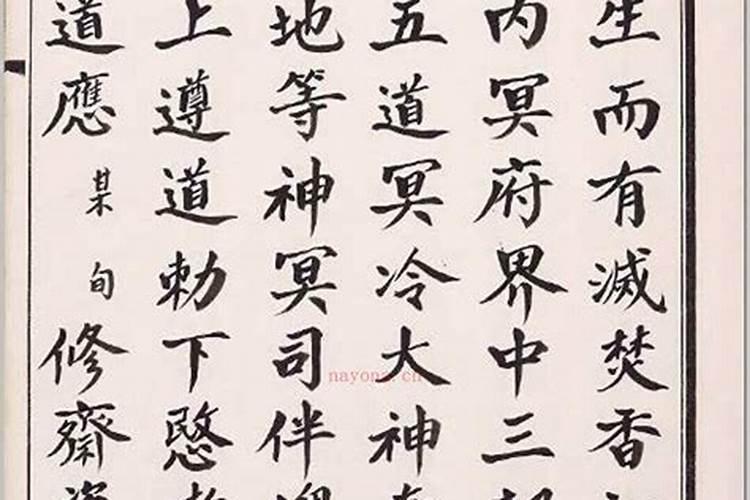 生而有滅焚香
内冥府界中三
五道冥冷大神
地等神冥司伴
上遵道勅下愍
道應某旬修齋
nayona.cn